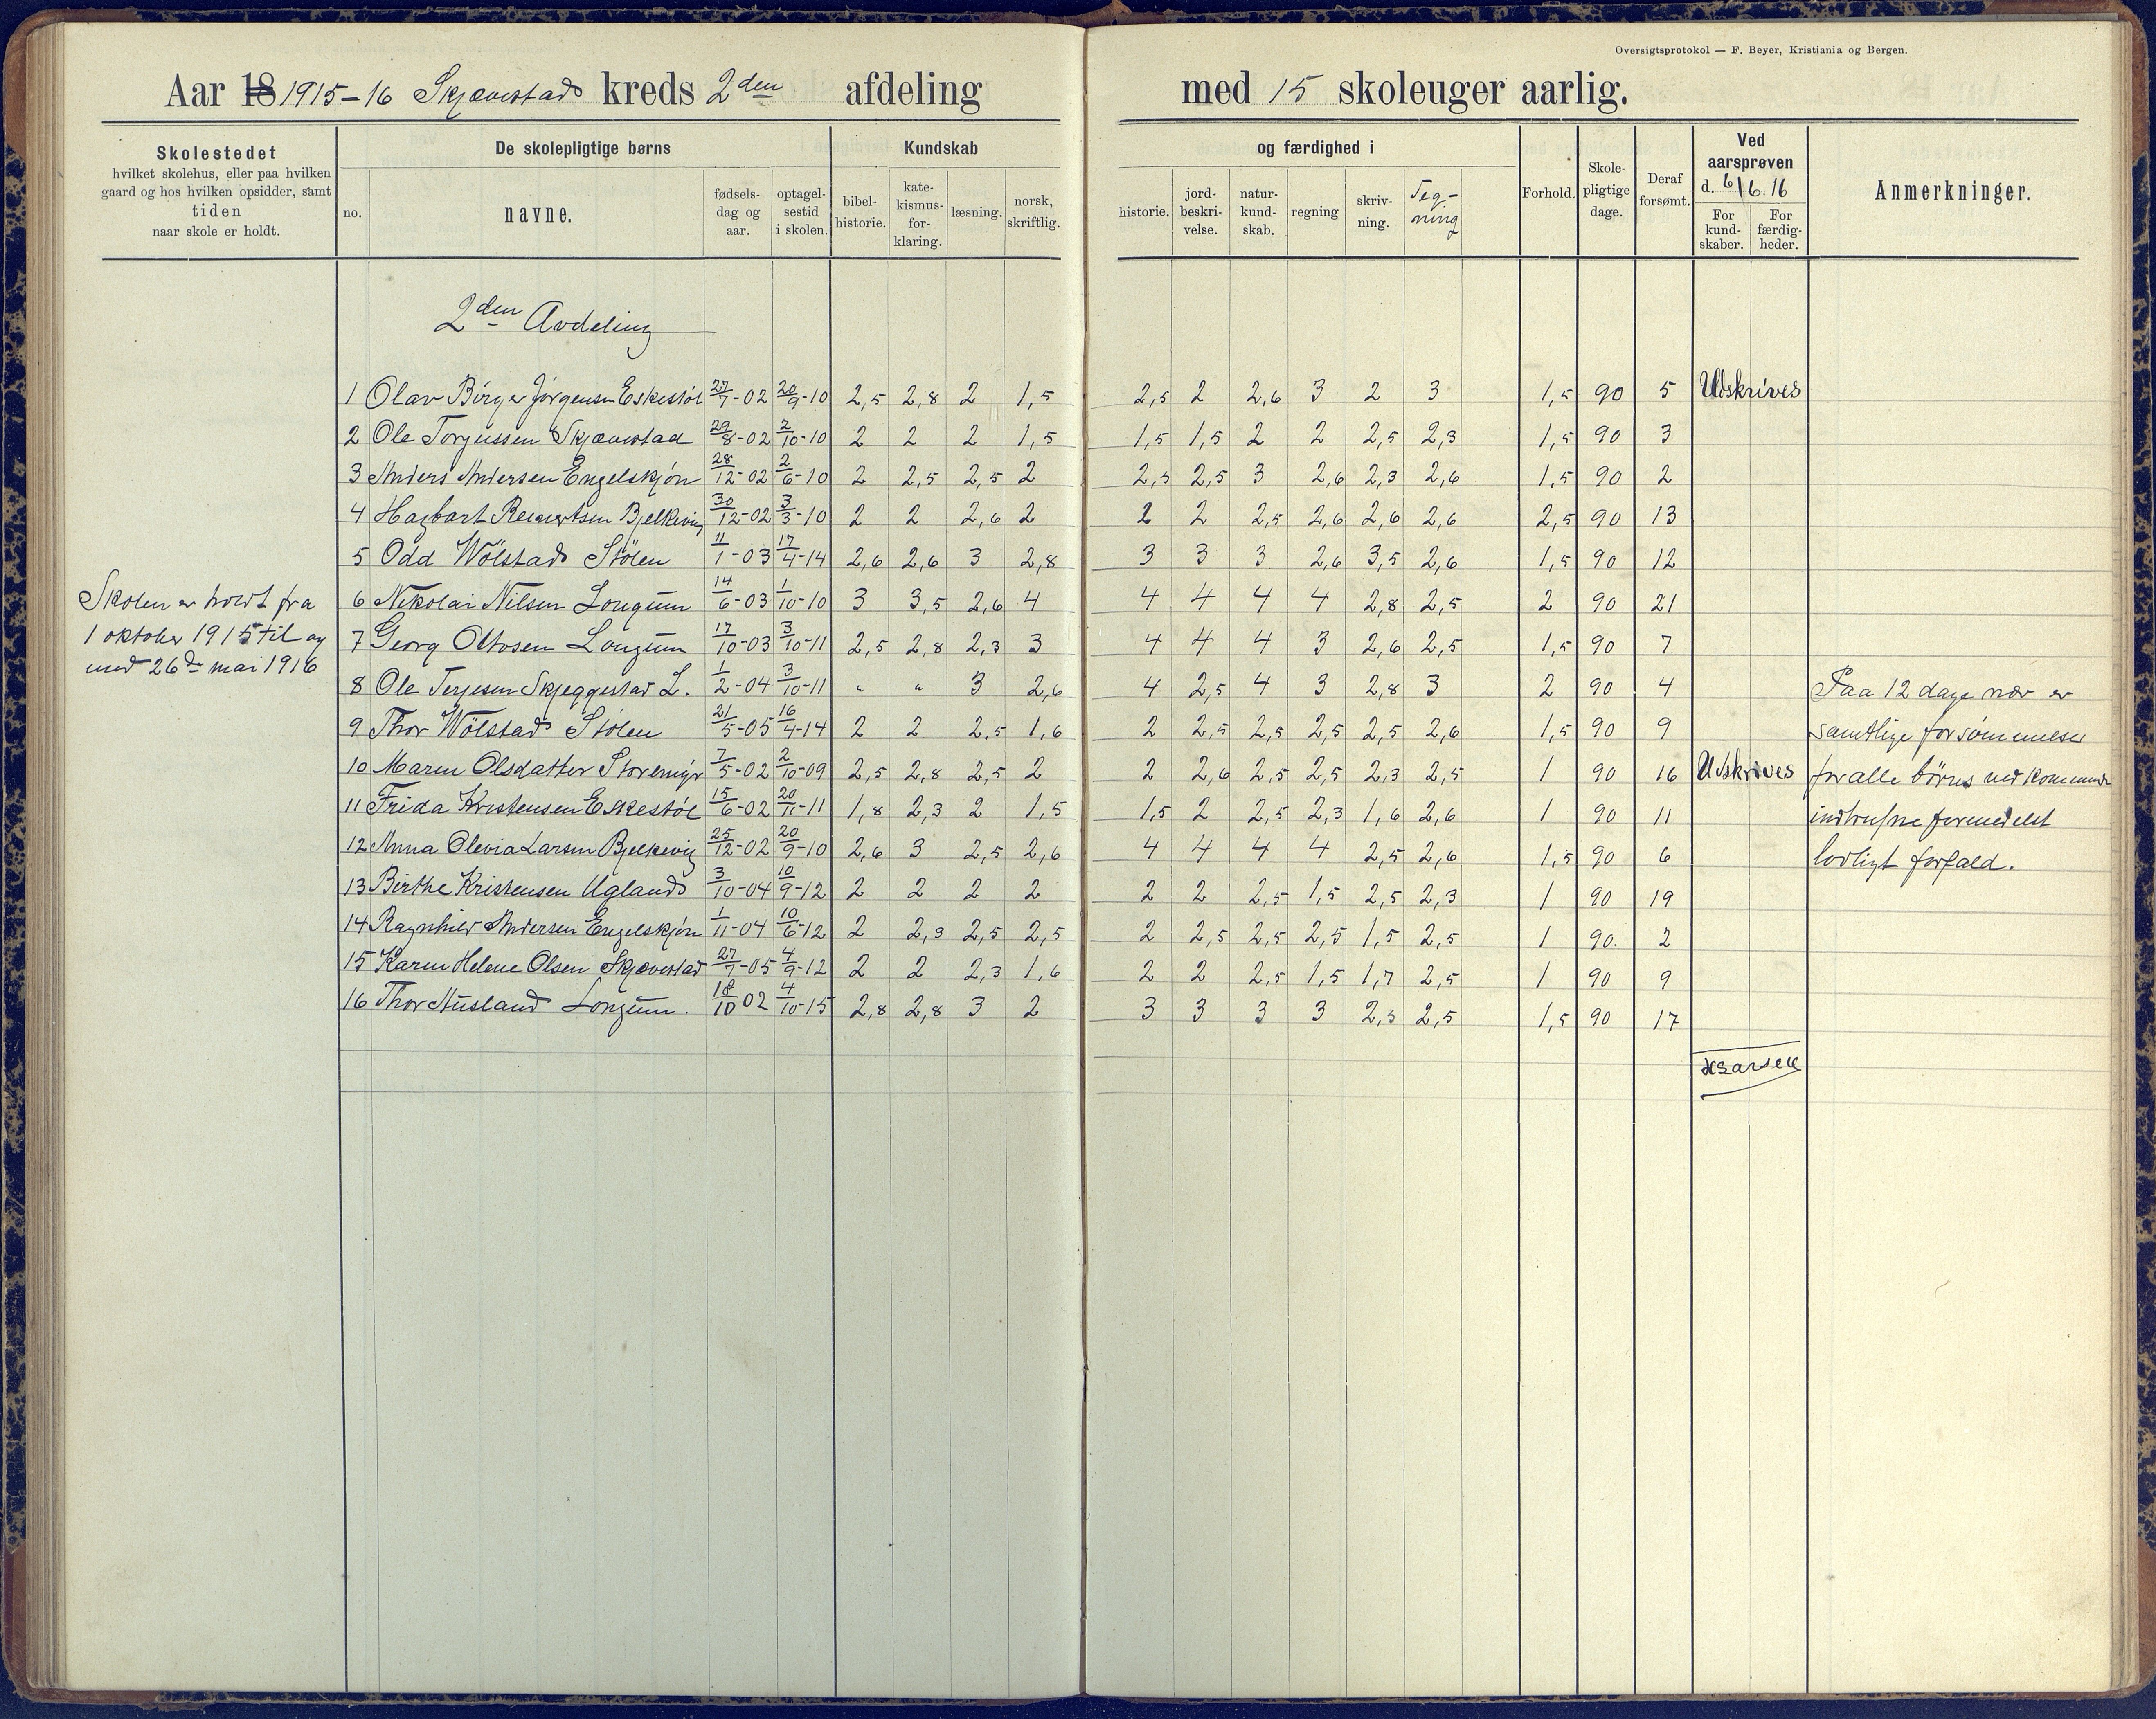 Oversigtsprotokol — F. Beyer, Kristiania og Bergen.
Aar 18 1915-16 Skjævestad kreds 2den afdeling med 15 skoleuger aarlig.
Skolestedet
hvilket skolehus, eller paa hvilken
gaard og hos hvilken opsidder, samt
tiden
naar skole er holdt.
De skolepligtige børns
no.
navne.
fødsels-
dag og
aar.
optagel-
sestid
i skolen.
Kundskab
bibel-
historie.
kate-
kismus-
for-
klaring.
læsning.
norsk,
skriftlig.
og færdighed i
historie.
jord-
beskri-
velse.
natur-
kund-
skab.
regning
skriv-
ning.
Teg-
ning
Forhold.
Skole-
pligtige
dage.
Deraf
forsømt.
Ved
aarsprøven
d. 6/6.16
For
kund-
skaber.
For
færdig-
heder.
Anmerkninger.
2den Avdeling
1 Olav Birger Jørgensen Eskestøl 27/7-02 20/9-10 2,5 2,8 2 1,5 2,5 2 2,6 3 2 3 1,5 90 5 Udskrives
2 Ole Torjussen Skjævestad 29/8-02 2/10-10 2 2 2 1,5 1,5 1,5 2 2 2,5 2,3 1,5 90 3
3 Anders Andersen Engelskjøn 28/12-02 2/6-10 2 2,5 2,5 2 2,5 2,5 3 2,6 2,3 2,6 1,5 90 2
4 Hagbart Reinertsen Bjelkevig 30/12-02 3/3-10 2 2 2,6 2 2 2 2,5 2,6 2,6 2,6 2,5 90 13
5 Odd Wölstad Stölen 11/1-03 17/4-14 2,6 2,6 3 2,8 3 3 3 2,6 3,5 2,6 1,5 90 12
6 Nikolai Nilsen Longum 14/6-03 1/10-10 3 3,5 2,6 4 4 4 4 4 2,8 2,5 2 90 21
7 Georg Ottosen Longum 17/10-03 3/10-11 2,5 2,8 2,3 3 4 4 4 3 2,6 2,5 1,5 90 7
8 Ole Terjesen Skjeggestad L. 1/2-04 3/10-11 " " 3 2,6 4 2,5 4 3 2,8 3 2 90 4
9 Thor Wölstad Stölen 21/5-05 16/4-14 2 2 2,5 1,6 2 2,5 2,5 2,5 2,5 2,6 1,5 90 9
10 Maren Olsdatter Storemyr 7/5-02 2/10-09 2,5 2,8 2,5 2 2 2,6 2,5 2,5 2,3 2,5 1 90 16 Udskrives
11 Frida Kristensen Eskestøl 15/6-02 20/11-11 1,8 2,3 2 1,5 1,5 2 2,5 2,3 1,6 2,6 1 90 11
12 Anna Olevia Larsen Bjelkevig 25/12-02 20/9-10 2,6 3 2,5 2,6 4 4 4 4 2,5 2,6 1,5 90 6
13 Birthe Kristensen Ugland 3/10-04 10/9-12 2 2 2 2 2 2 2,5 1,5 2,5 2,3 1 90 19
14 Ragnhild Andersen Engelskjøn 1/11-04 10/6-12 2 2,3 2,5 2,5 2 2,5 2,5 2,5 1,5 2,5 1 90. 2
15 Karen Helene Olsen Skjævestad 27/7-05 4/9-12 2 2 2,3 1,6 2 2 2,5 1,5 1,7 2,5 1 90 9
16 Thor Ausland Longum. 18/10 02 4/10-15 2,8 2,8 3 2 3 3 3 3 2,5 2,5 1,5 90 17
Skolen er holdt fra
1 oktober 1915 til og
med 26de mai 1916
Paa 12 dage nær er
samtlige forsømmelser
for alle børns vedkommende
indtrufne formedelst
lovligt forfald.